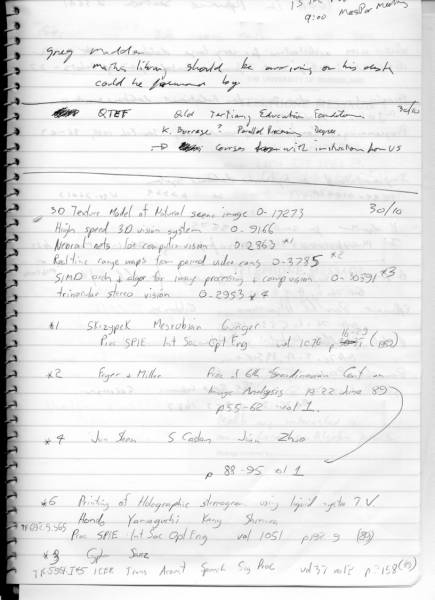 9:00 MasPar Meeting
greg madden
maths library should be arriving on his desk
could be forward by
QTEF Qld Tertiary Education Foundation 30/10
K. Burrage? Parallel Processing Degree
→ courses with instruction from US
3D Texture Model of Natural scene image 0-17273 30/10
High speed 3D vision system 0-9166
Neural nets for computer vision 0-2963 *1
Realtime range maps from paired video cams 0-3785 *2
SIMD arch + algor for image processing + comp vision 0-30391 *3
trinocular stereo vision 0-2953 *4
*1 Skrzypek Mesrobian Gungor
Proc SPIE Int Soc Opt Eng vol 1076 p
*2 + Miller Proc of 6th Scandinavian Conf on
Image Analysis 19-22 June 89
p55-62 vol 1.
*4 Jun Shen S Castan Jian Zhao
p 88-95 vol 1
*6 Printing of Holographic stereogram using liquid crystal T.V.
Honda Yamaguchi Kang
Proc SPIE Int Soc Opt Eng vol 1051 p 9 (89)
*3
IEEE Trans Acoust Speech Sig Proc vol 37